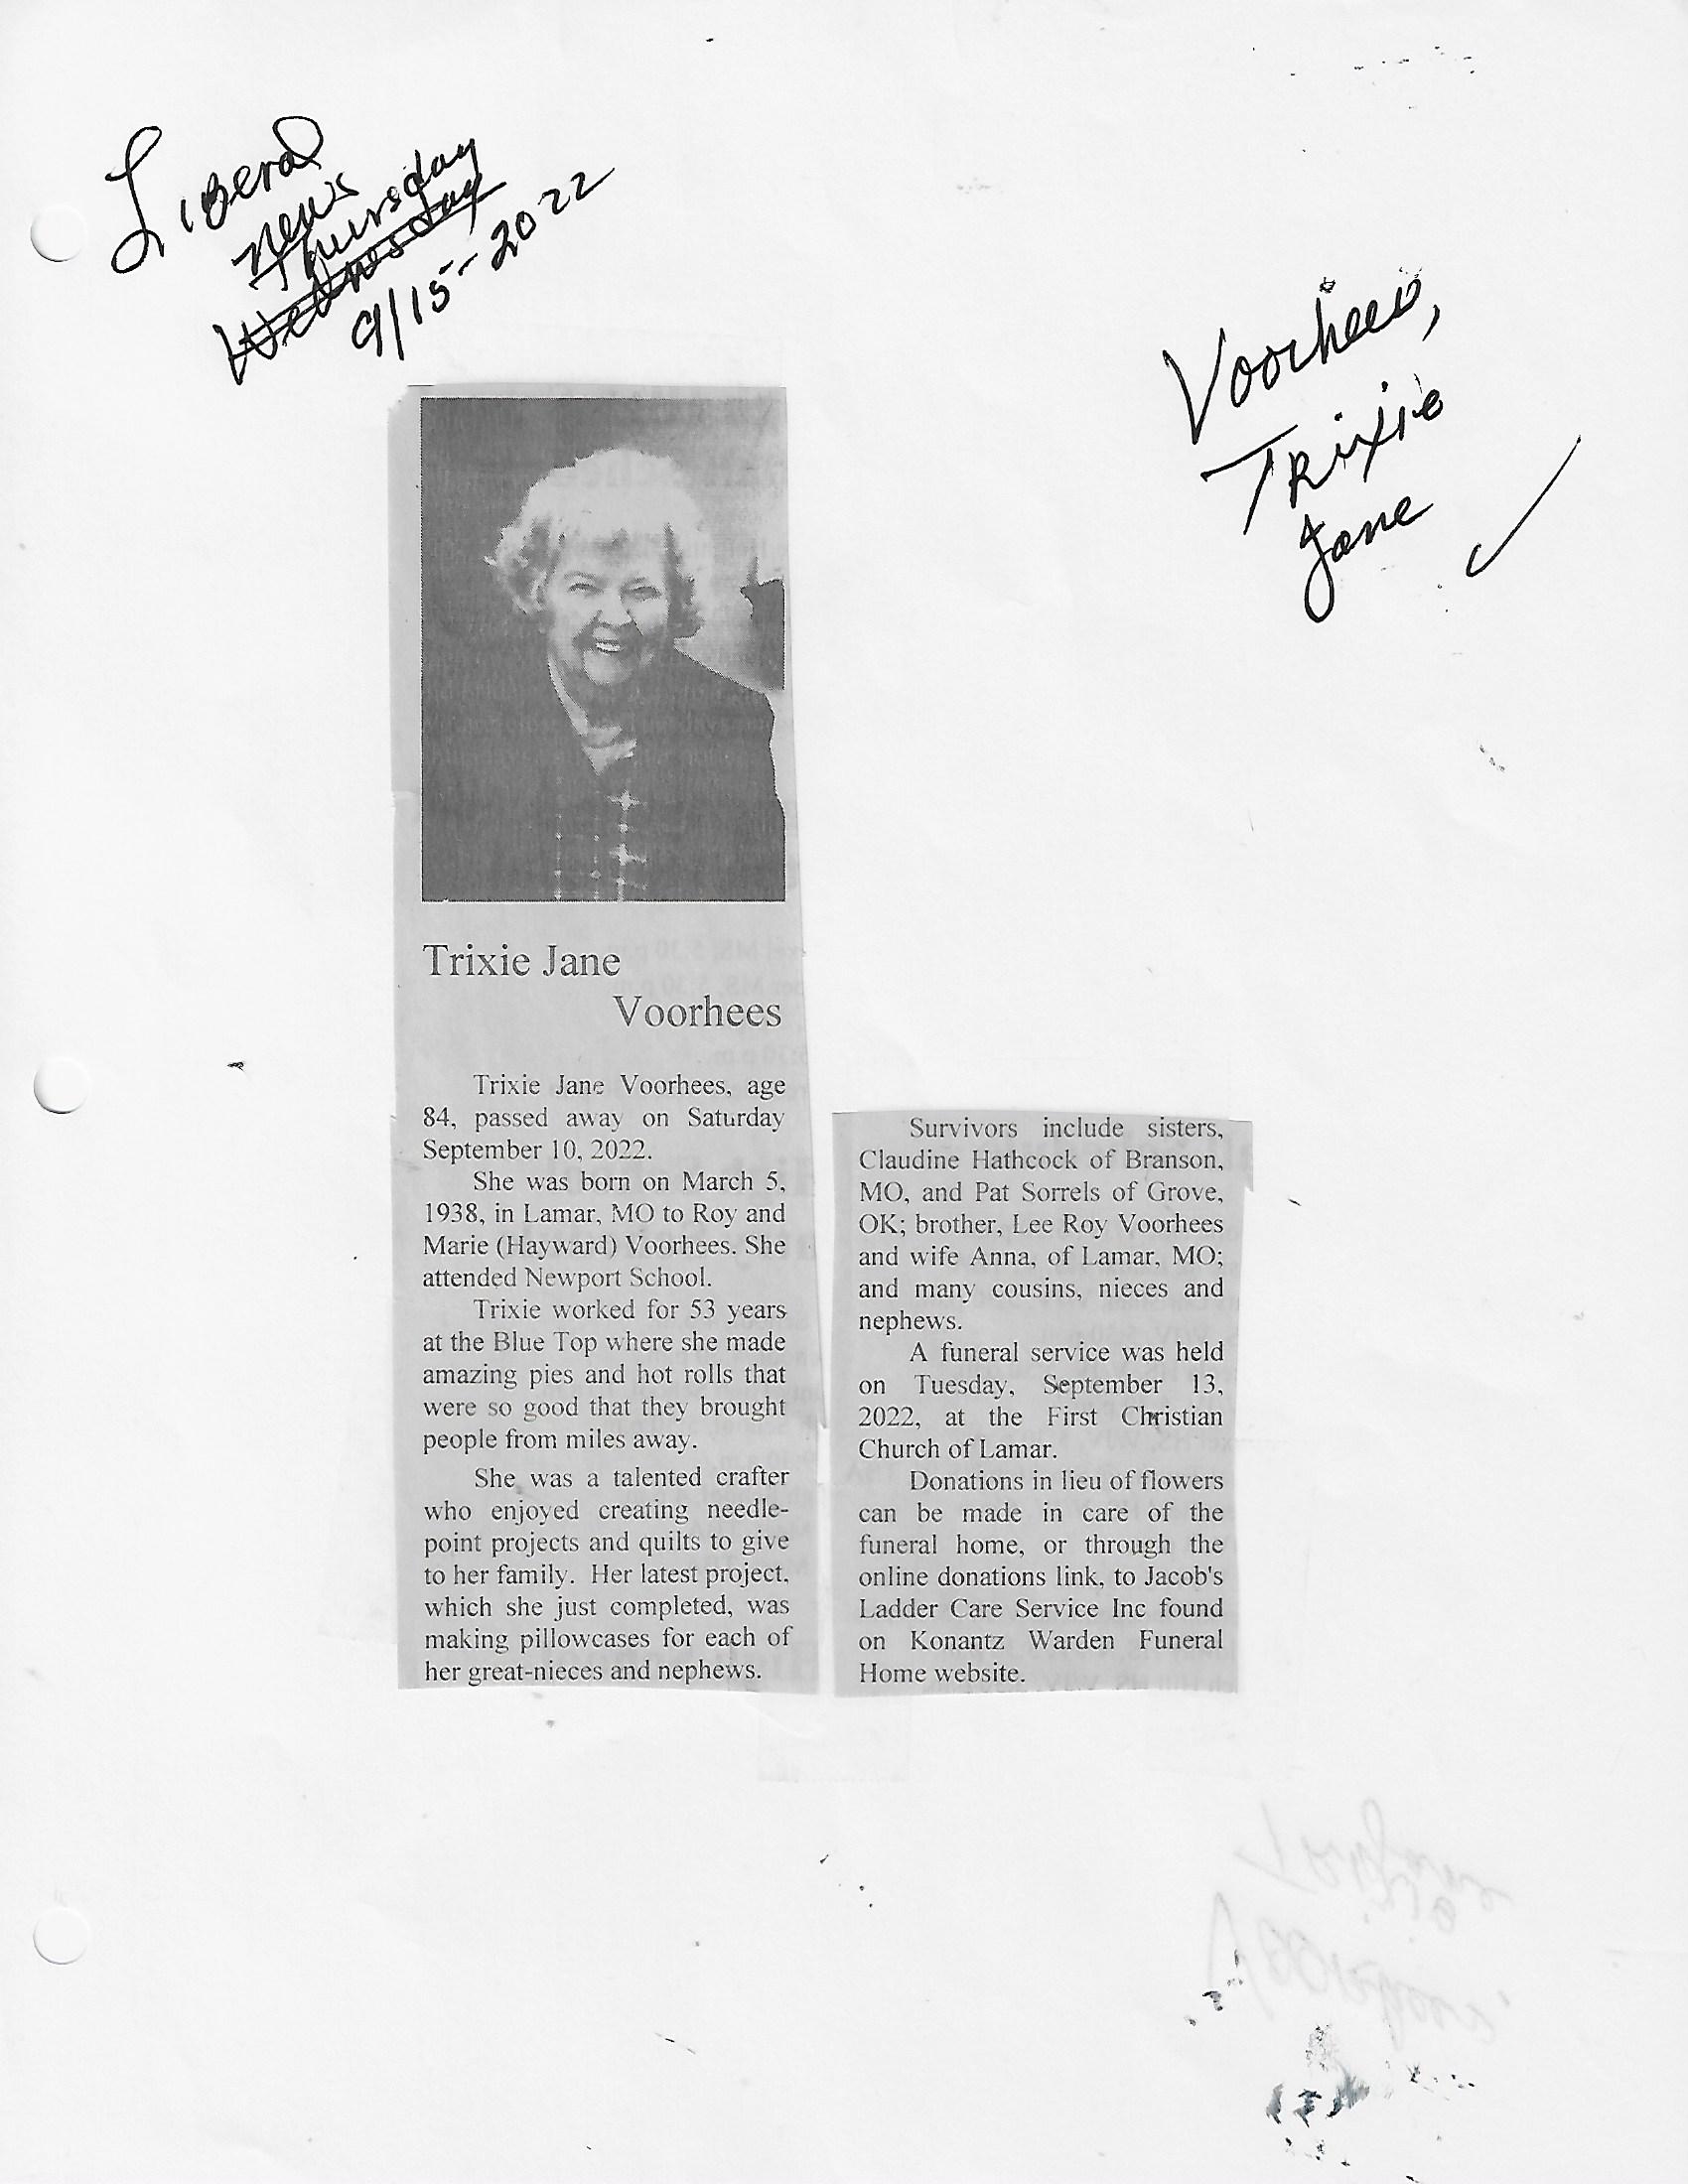 Liberal
News
Thursday
Wednesday
9/15-2022
Voorhees,
Trixie
Jane
Trixie Jane
Voorhees
Trixie Jane Voorhees, age
84, passed away on Saturday
September 10, 2022.
She was born on March 5,
1938, in Lamar, MO to Roy and
Marie (Hayward) Voorhees. She
attended Newport School.
Trixie worked for 53 years
at the Blue Top where she made
amazing pies and hot rolls that
were so good that they brought
people from miles away.
She was a talented crafter
who enjoyed creating needle-
point projects and quilts to give
to her family. Her latest project,
which she just completed, was
making pillowcases for each of
her great-nieces and nephews.
Survivors include sisters,
Claudine Hathcock of Branson,
MO, and Pat Sorrels of Grove,
OK; brother, Lee Roy Voorhees
and wife Anna, of Lamar, MO;
and many cousins, nieces and
nephews.
A funeral service was held
on Tuesday, September 13,
2022, at the First Christian
Church of Lamar.
Donations in lieu of flowers
can be made in care of the
funeral home, or through the
online donations link, to Jacob's
Ladder Care Service Inc found
on Konantz Warden Funeral
Home website.